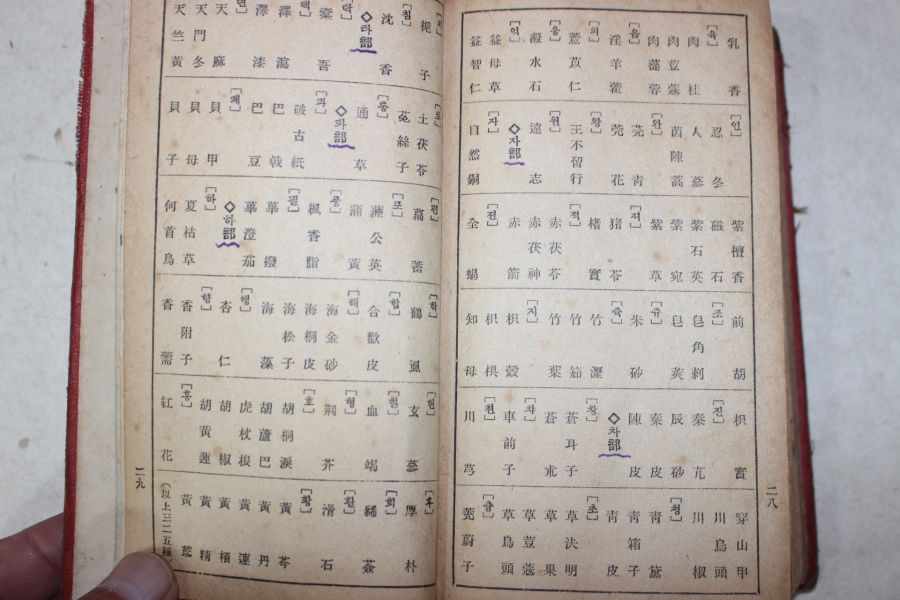 乳香
[육]
肉桂
肉荳蔲
肉蓯蓉
[음]
淫羊藿
[의]
薏苡仁
[응]
凝水石
[익]
益母草
益智仁
[인]
忍冬
人蔘
茵陳蒿
[완]
莞靑
莞花
[왕]
王不留行
[원]
遠志
◇자部
[자]
自然銅
紫檀香
磁石
紫石英
紫宛
紫草
[저]
猪苓
楮實
[적]
赤茯苓
赤茯神
赤箭
[전]
全蝎
前胡
[조]
皂角刺
皂莢
[쥬]
朱砂
[쥭]
竹瀝
竹筎
竹葉
[지]
枳殼
枳椇
知母
枳實
[진]
秦艽
辰砂
秦皮
陳皮
◇차部
[창]
蒼耳子
蒼朮
[챠]
車前子
[천]
川芎
穿山甲
川烏頭
川椒
[청]
靑黛
靑箱子
靑皮
[초]
草決明
草果
草荳蔲
草烏頭
茺蔚子
二八
[치]
梔子
[침]
沈香
◇타部
[탁]
橐吾
[택]
澤瀉
澤漆
天麻
天門冬
天竺黃
[토]
土茯苓
菟絲子
[통]
通草
◇파部
[파]
破古紙
巴戟
巴豆
[패]
貝甲
貝母
貝子
[편]
萹蓄
[포]
蒲公英
蒲黃
[풍]
楓香脂
[필]
蓽撥
蓽澄茄
◇하部
[하]
夏枯草
何首烏
[학]
鶴虱
[합]
合歡皮
[해]
海金砂
海桐皮
海松子
海藻
[행]
杏仁
[향]
香附子
香薷
[현]
玄蔘
[혈]
血竭
[형]
荆芥
[호]
胡桐淚
胡蘆巴
虎杖根
胡椒
胡黃蓮
[홍]
紅花
[후]
厚朴
[희]
豨薟
[활]
滑石
[황]
黃芩
黃丹
黃連
黃栢
黃精
黃芪
(以上三二五種)
二九